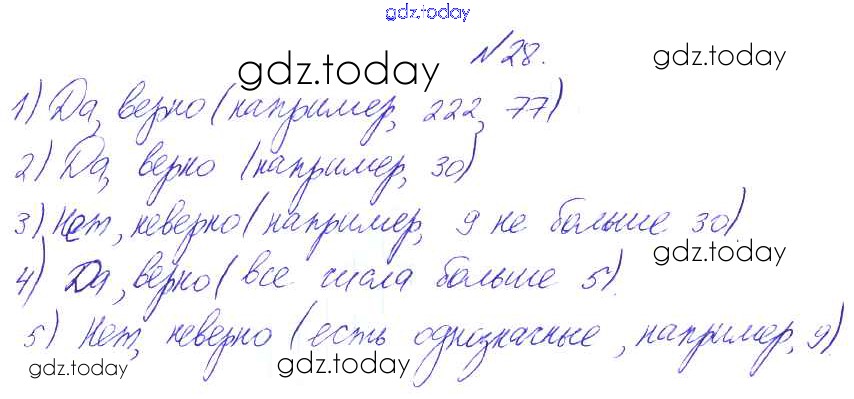 gdz.today
№28.
gdz.today
gdz.today
1) Да, верно (например, 222, 77)
2) Да, верно (например, 30)
3) Нет, неверно (например, 9 не больше 30)
gdz.today
4) Да, верно (все числа больше 5).
5) Нет, неверно (есть однозначные, например, 9).
gdz.today
gdz.today
gdz.today